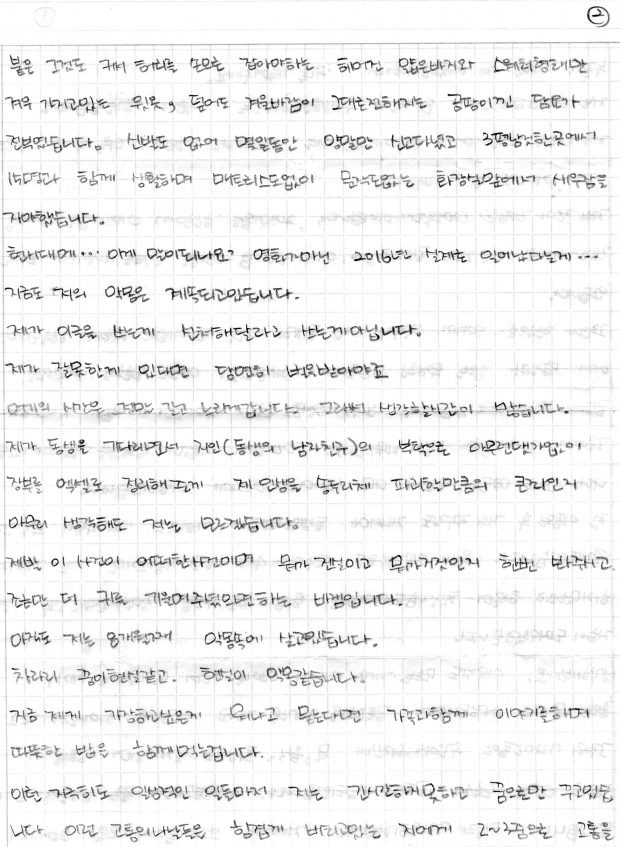 ②
붙은 그것도 커서 허리를 손으로 잡아야하는 헤어진 얇은바지와 스웨터형태만
겨우 가지고있는 윗옷, 덮어도 겨울바람이 그대로전해지는 곰팡이낀 담요가
전부였습니다. 신발도 없어 몇일동안 양말만 신고다녔고 3평남짓한곳에서
15명과 함께 생활하며 매트리스도없이 문짝도없는 화장실앞에서 새우잠을
자야했습니다.
현시대에… 이게 말이되나요? 영화가아닌 2016년 실제로 일어났다는게…
지금도 저의 악몽은 계속되고있습니다.
제가 이글을 쓰는게 선처해달라고 쓰는게아닙니다.
제가 잘못한게 있다면 당연히 벌을받아야죠
여기의 시간은 정말 길고 느리게갑니다. 그래서 생각할시간이 많습니다.
제가 동생을 기다리면서 지인(동생의 남자친구)의 부탁으로 아무런댓가없이
장부를 엑셀로 정리해준게 제 인생을 송두리체 파괴할만큼의 큰죄인지
아무리 생각해도 저는 모르겠습니다.
제발 이 사건이 어떠한사건이며 뭐가 진실이고 뭐가거짓인지 한번만 봐주시고
조금만 더 귀를 기울여주셨으면하는 바램입니다.
아직도 저는 8개월째 악몽속에 살고있습니다.
차라리 꿈이현실같고. 현실이 악몽같습니다.
지금 제게 가장하고싶은게 뭐냐고 묻는다면 가족과함께 이야기를하며
따뜻한 밥을 함께먹는겁니다.
이런 지극히도 일상적인 일들마저 저는 간사간하지못하고 꿈으로만 꾸고있습
니다. 이런 고통의나날들을 힘겹게 버티고있는 저에게 2~3줌으로 고통을